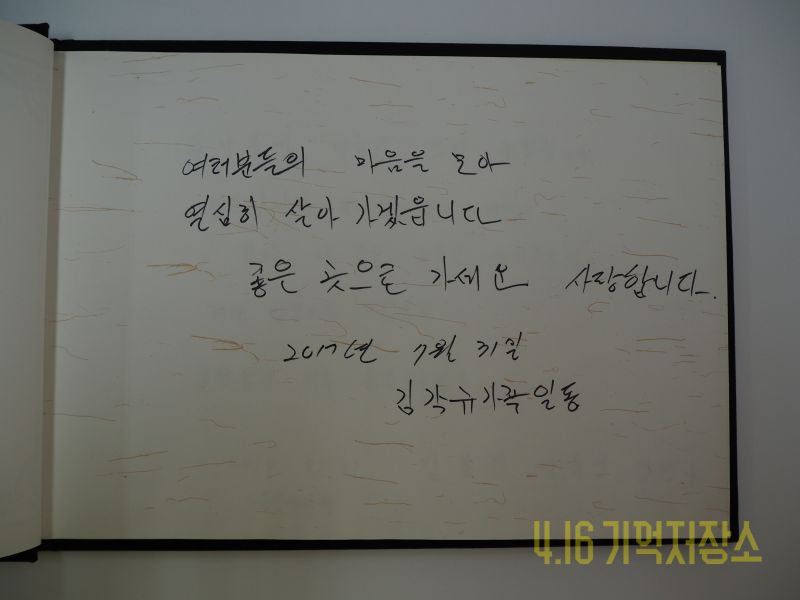 여러분들의 마음을 모아
열심히 살아 가겠읍니다
좋은 곳으로 가세요 사랑합니다.
2017년 7월 31일
김각규가족일동
4.16 기억저장소